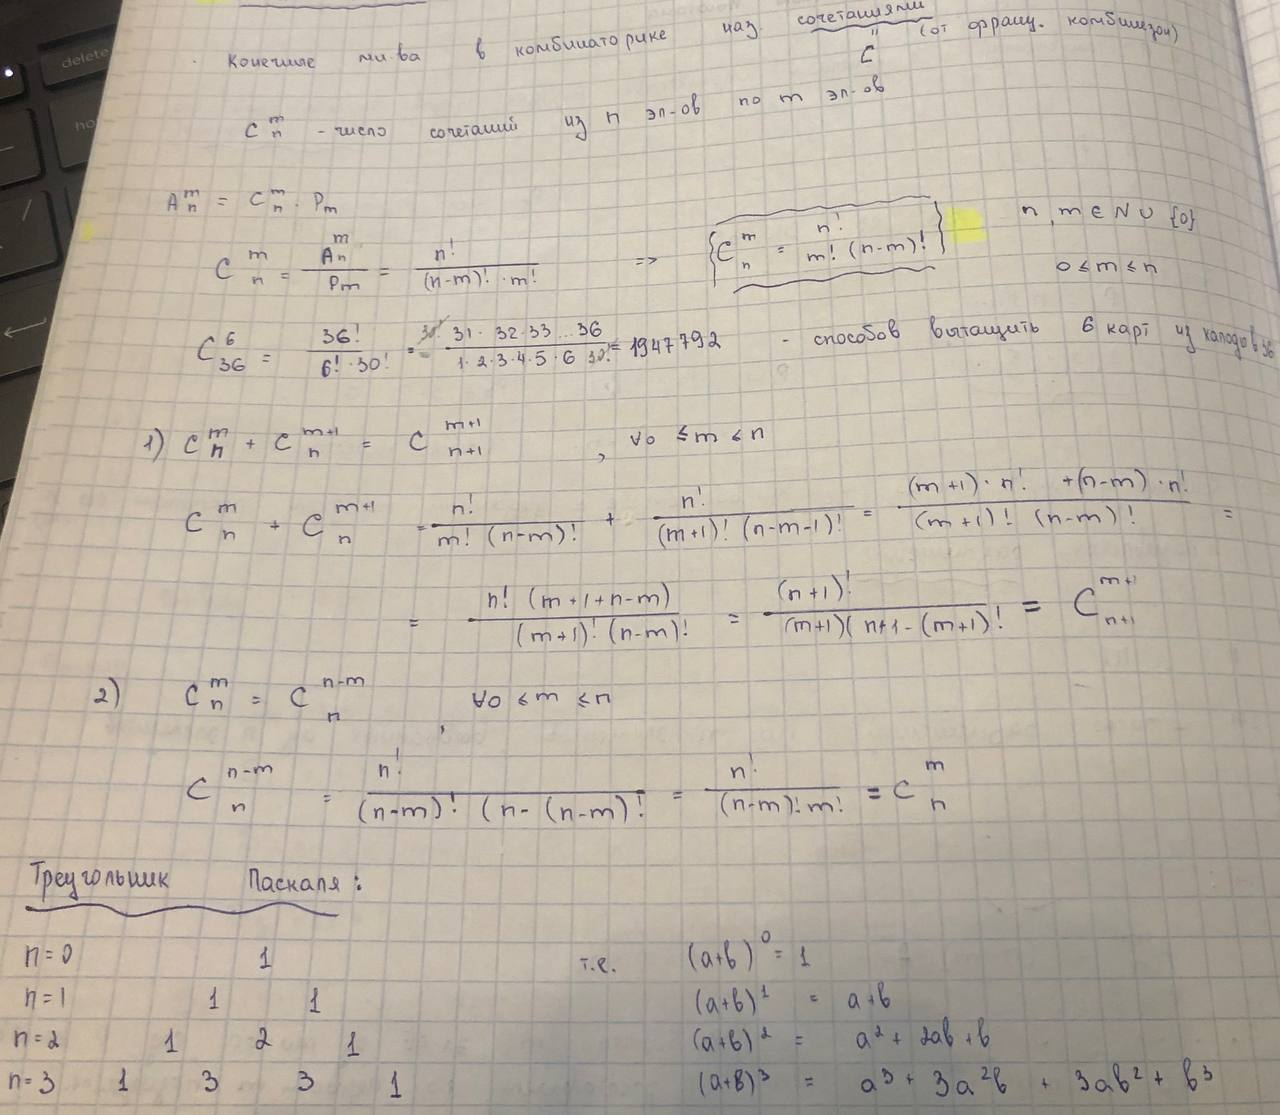 Конечные мн-ва в комбинаторике наз. сочетаниями (от франц. комбинезон)
"
C
C_n^m - число сочетаний из n эл-ов по m эл-ов
A_n^m = C_n^m · P_m
C_n^m = A_n^m / P_m = n! / ((n-m)! · m!) => C_n^m = n! / (m! (n-m)!) n, m ∈ N ∪ {0}
0 ≤ m ≤ n
C_36^6 = 36! / (6! · 30!) = 31 · 32 · 33 ... 36 / (1 · 2 · 3 · 4 · 5 · 6 30!) = 1947792 - способов вытащить 6 карт из колоды в 36
1) C_n^m + C_n^{m+1} = C_{n+1}^{m+1} , ∀0 ≤ m < n
C_n^m + C_n^{m+1} = n! / (m! (n-m)!) + n! / ((m+1)! (n-m-1)!) = ((m+1) · n! + (n-m) · n!) / ((m+1)! (n-m)!) =
= n! (m+1+n-m) / ((m+1)! (n-m)!) = (n+1)! / (m+1)(n+1-(m+1)! = C_{n+1}^{m+1}
2) C_n^m = C_n^{n-m} , ∀0 ≤ m ≤ n
C_n^{n-m} = n! / (n-m)! (n-(n-m)! = n! / (n-m)! m! = C_n^m
Треугольник Паскаля:
n=0 1 т.е. (a+b)^0 = 1
n=1 1 1 (a+b)^1 = a+b
n=2 1 2 1 (a+b)^2 = a^2 + 2ab + b
n=3 1 3 3 1 (a+b)^3 = a^3 + 3a^2b + 3ab^2 + b^3
delete